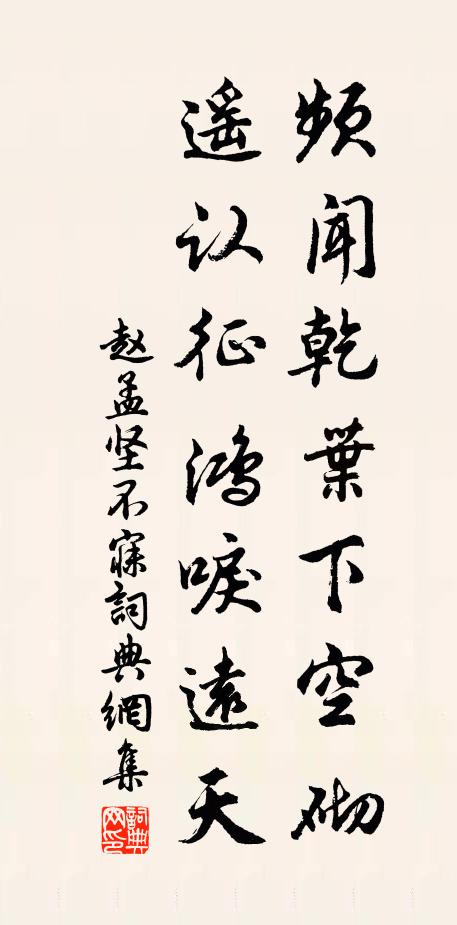 频闻乾葉下空砌
遥认征鸿唳遠天
赵孟坚不寐詞典網集
詞典网印